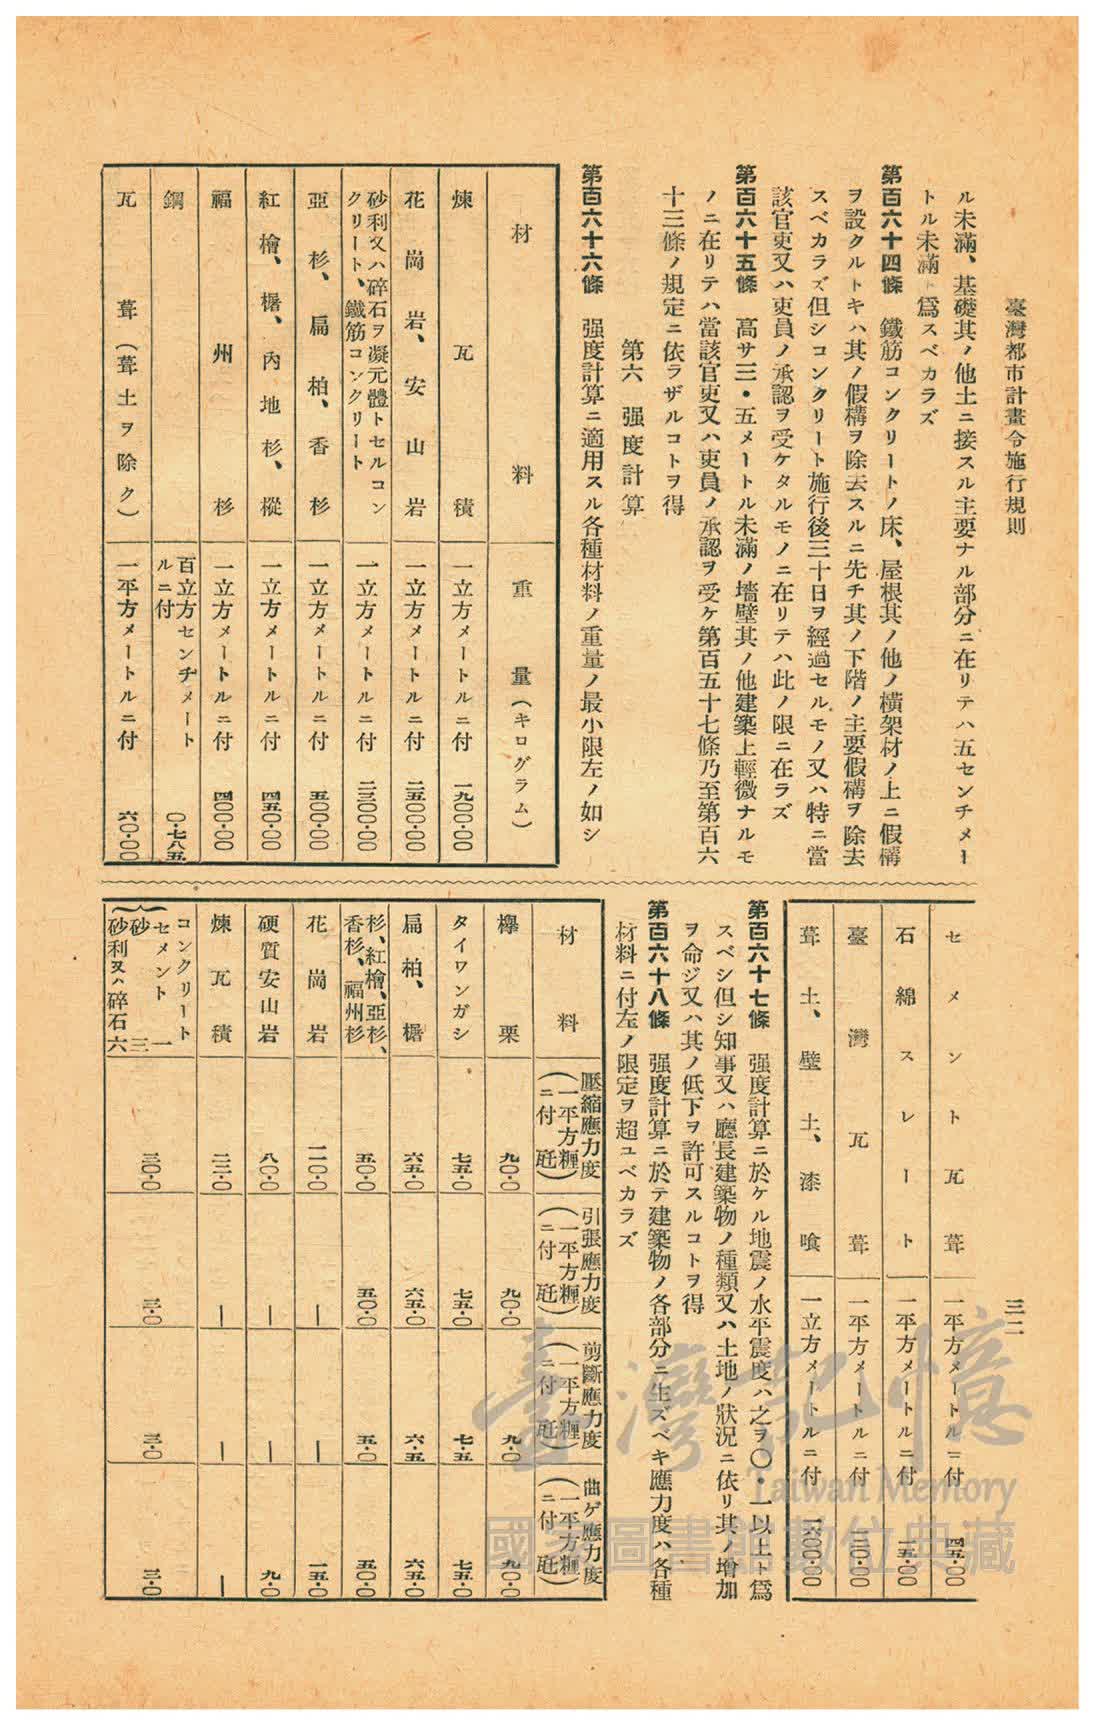 臺灣都市計畫令施行規則
三二
ル未滿、基礎其ノ他土ニ接スル主要ナル部分ニ在リテハ五センチメー
トル未滿ト爲スベカラズ
第百六十四條　鐵筋コンクリートノ床、屋根其ノ他ノ橫架材ノ上ニ假構
ヲ設クルトキハ其ノ假構ヲ除去スルニ先チ其ノ下階ノ主要假構ヲ除去
スベカラズ但シコンクリート施行後三十日ヲ經過セルモノ又ハ特ニ當
該官吏又ハ吏員ノ承認ヲ受ケタルモノニ在リテハ此ノ限ニ在ラズ
第百六十五條　高サ三・五メートル未滿ノ墻壁其ノ他建築上輕微ナルモ
ノニ在リテハ當該官吏又ハ吏員ノ承認ヲ受ケ第百五十七條乃至第百六
十三條ノ規定ニ依ラザルコトヲ得
第六　强度計算
第百六十六條　强度計算ニ適用スル各種材料ノ重量ノ最小限左ノ如シ
材料　重量（キログラム）
煉瓦積　一立方メートルニ付　一九〇〇・〇〇
花崗岩、安山岩　一立方メートルニ付　二五〇〇・〇〇
砂利又ハ碎石ヲ凝元體トセルコン
クリート、鐵筋コンクリート　一立方メートルニ付　二三〇〇・〇〇
亞杉、扁柏、香杉　一立方メートルニ付　五〇〇・〇〇
紅檜、櫧、內地杉、樅　一立方メートルニ付　四五〇・〇〇
福州杉　一立方メートルニ付　四〇〇・〇〇
鋼　百立方センチメート
ルニ付　〇・七八五
瓦葺（葺土ヲ除ク）　一平方メートルニ付　六〇・〇〇
セメント瓦葺　一平方メートルニ付　四五・〇〇
石綿スレート　一平方メートルニ付　一五・〇〇
臺灣瓦葺　一平方メートルニ付　一二〇・〇〇
葺土、壁土、漆喰　一立方メートルニ付　一六〇〇・〇〇
第百六十七條　强度計算ニ於ケル地震ノ水平震度ハ之ヲ〇・一以上ト爲
スベシ但シ知事又ハ廳長建築物ノ種類又ハ土地ノ狀況ニ依リ其ノ增加
ヲ命ジ又ハ其ノ低下ヲ許可スルコトヲ得
第百六十八條　强度計算ニ於テ建築物ノ各部分ニ生ズベキ應力度ハ各種
材料ニ付左ノ限定ヲ超ユベカラズ
材料　壓縮應力度（一平方糎ニ付瓩）　引張應力度（一平方糎ニ付瓩）　剪斷應力度（一平方糎ニ付瓩）　曲ゲ應力度（一平方糎ニ付瓩）
欅栗　九〇・〇　九〇・〇　九・〇　九〇・〇
タイワンガシ　七五・〇　七五・〇　七・五　七五・〇
扁柏、櫧　六五・〇　六五・〇　六・五　六五・〇
杉、紅檜、亞杉、
香杉、福州杉　五〇・〇　五〇・〇　五・〇　五〇・〇
花崗岩　一一〇・〇　—　—　一五・〇
硬質安山岩　八〇・〇　—　—　九・〇
煉瓦積　二二・〇　—　—　—
コンクリート
セメント　一
砂　三
砂利又ハ碎石　六　三〇・〇　三・〇　三・〇　三・〇
臺灣記憶
Taiwan Memory
國家圖書館數位典藏